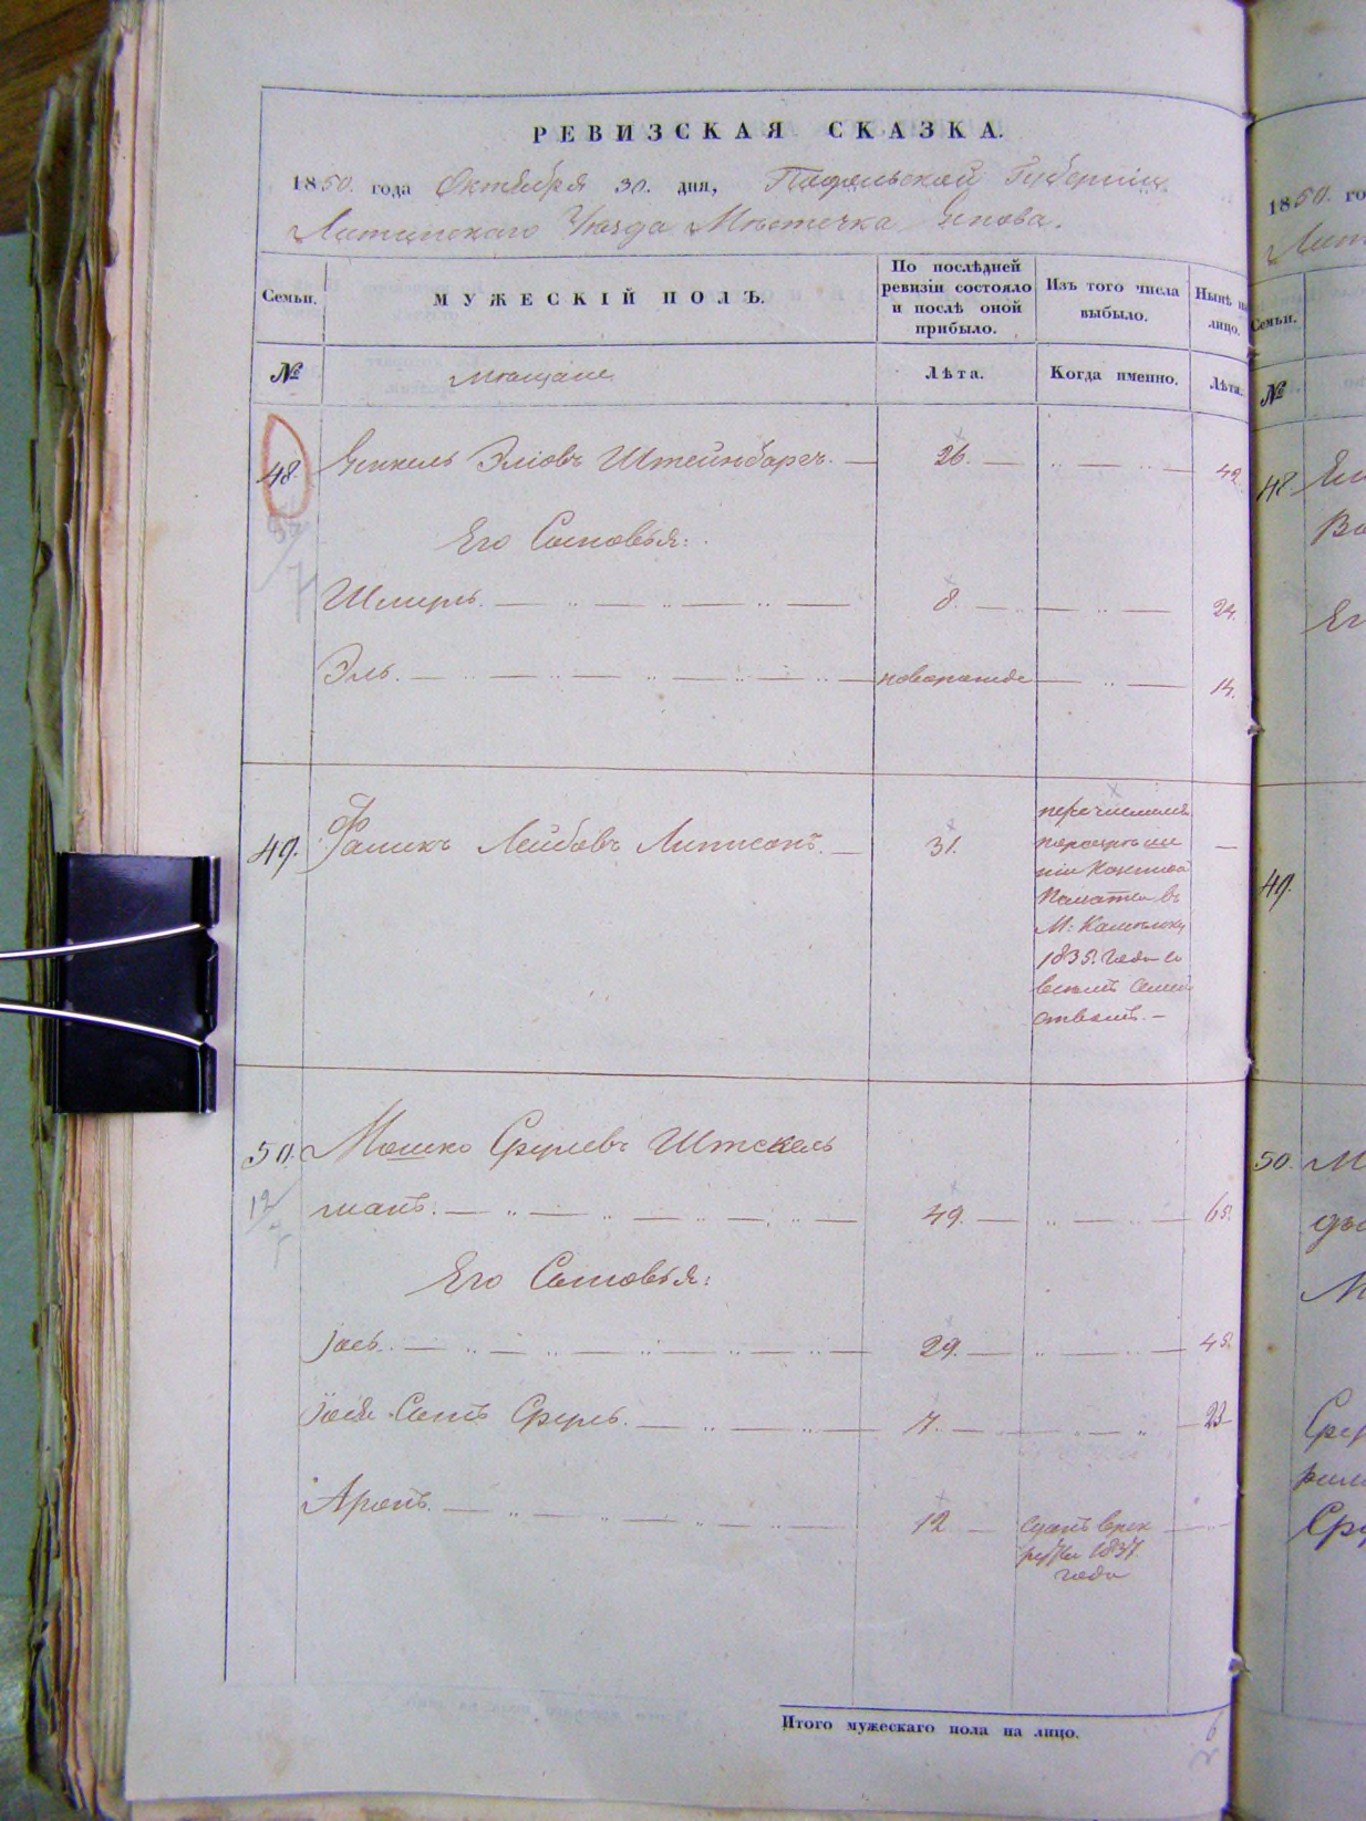 РЕВИЗСКАЯ СКАЗКА.
1850. года Октября 30. дня, Подольской Губерніи
Литинскаго Уезда Мѣстечка Янова.
Семьи.
МУЖЕСКІЙ ПОЛЪ.
По послѣдней ревизіи состояло и послѣ оной прибыло.
Изъ того числа выбыло.
Нынѣ на лицо.
№
мѣщане
Лѣта.
Когда именно.
Лѣта.
48. Янкель Эліовъ Штейнбаргъ. 26. 42.
Его Сыновья:
Шмуль. 8. 24.
Эль. новорожде 14.
49. Фаликъ Лейбовъ Липисонъ. 31. —
перечислился
по
Казенной
Палаты въ
М:
1835. года со
всемъ семей
ствомъ. —
50. Мошко Срулевъ Штекель
манъ. 49. 65.
Его Сыновья:
Іось. 29. 45.
Іося Сынъ Сруль. 7. 23
Аронъ. 12
сданъ в рек
руты 1837.
года
Итого мужескаго пола на лицо. 6
1850. го
Семьи.
№
48.
49.
50.